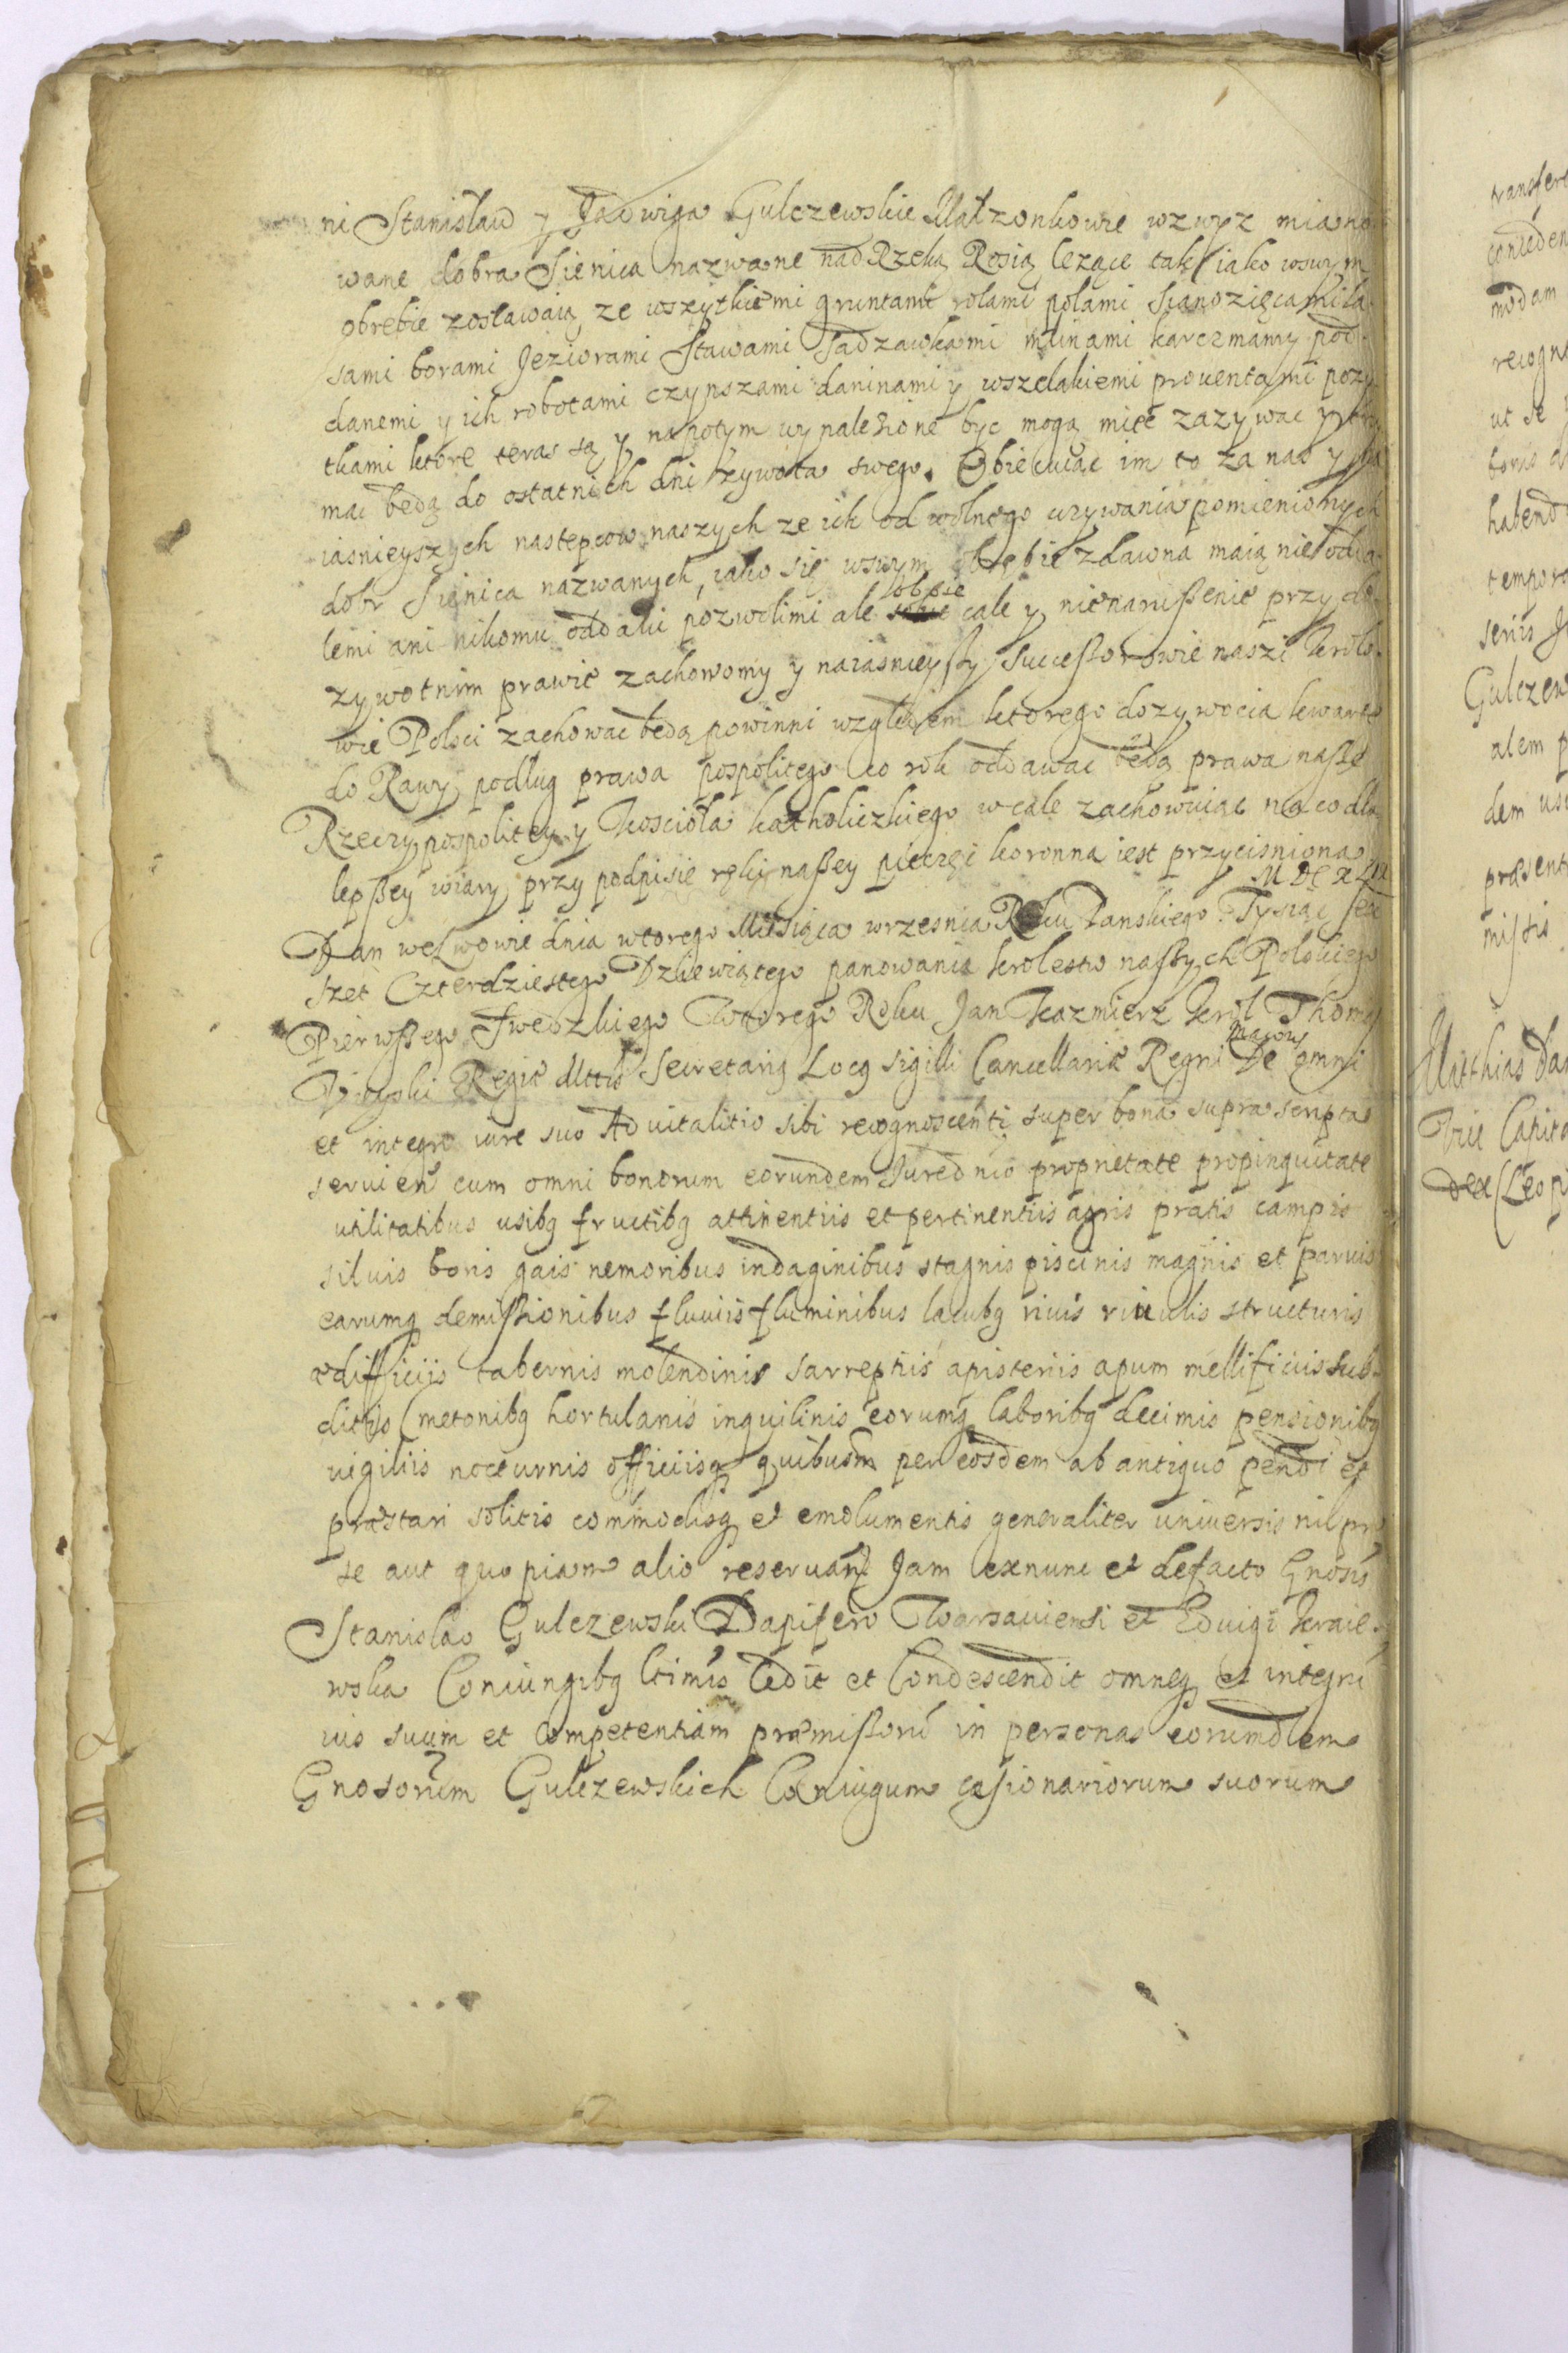 ni Stanisław y Jadwiga Gulczewskie Małzonkowie wzwyz miano
wane dobra Sienica nazwane nad Rzeką Rosią lezące tak iako wswym
obrebie zostawaią ze wszytkiemi gruntami rolami polami sianozięcami la
sami borami Jeziorami Stawami Sadzawkami mlinami karczmamy pod
danemi y ich robotami czynszami daninami y wszelakiemi prouentami pozy
tkami ktore teras są y napotym wynalezione byc mogą miec zazywac y
mac będą do ostatnich dni zywota swego. Obiecuiąc im to za nas y
iasnieyszych nastepcow naszych ze ich od wolnego uzywania pomienionych
dobr Sienica nazwanych, iako się wswym obrębie zdawna maią nie odda
lemi ani nikomu oddalic pozwolimi ale obsie cale y nienarußenie przy do
zywotnim prawie zachowomy y naiasnieyßy Succeßorowie naszi Krolo
wie Polsci zachować będą powinni względem ktorego dozywocia kwartę
do Rawy podług prawa pospolitego co rok oddawac będą prawa naße
Rzeczypospolitey y Kosciola katholiczkiego wcale zachowuiąc na co dla
lepßey wiary przy podpisie ręki naßey pieczęc koronna iest przycisniona
M DC XLIX
Dan we Lwowie dnia wtorego Miesiąca wrzesnia Roku Panskiego Tysiąc sex
szet Czterdziestego Dziewiątego panowania krolestw naßych Polskiego
Pierwßego Swedzkiego Wtorego Roku Jan Kazmierz Krol Thomas
Uieyski Regie Mttis Secretarig Locg sigilli Cancellariæ Regni Maioris De omni
et integro iure suo Aduitalitio sibi recognoscenti super bona supra scripta
seruien cum omni bonorum eorundem Iure dnio proprietate propinquitate
utilitatibus usibq fructibq attinentiis et pertinentiis agris pratis campis
siluis boris gais nemoribus indaginibus stagnis piscinis magnis et paruis
earumq demißionibus fluuiis fluminibus lacubq riuis riuulis structuris
ædifficiis tabernis molendinis sarreptiis apisteriis apum mellificiis sub
ditis Cmetonibq hortulanis inquilinis eorumq laboribq decimis pensionibq
uigiliis nocturnis officiisq quibusm per eosdem ab antiquo pendi et
præstari solitis commodisq et emolumentis generaliter uniuersis nil pro
se aut quopiam alio reseruan Jam exnunc et defacto Gnosis
Stanislao Gulczewski Dapifero Warsauiensi et Eduigi Kraie
wska Coniungibq ltimis Cedit et Condescendit omneq et integru
ius suum et Competentiam præmißoru in personas eorundem
Gnosorum Gulczewskich Coniugum cessionariorum suorum